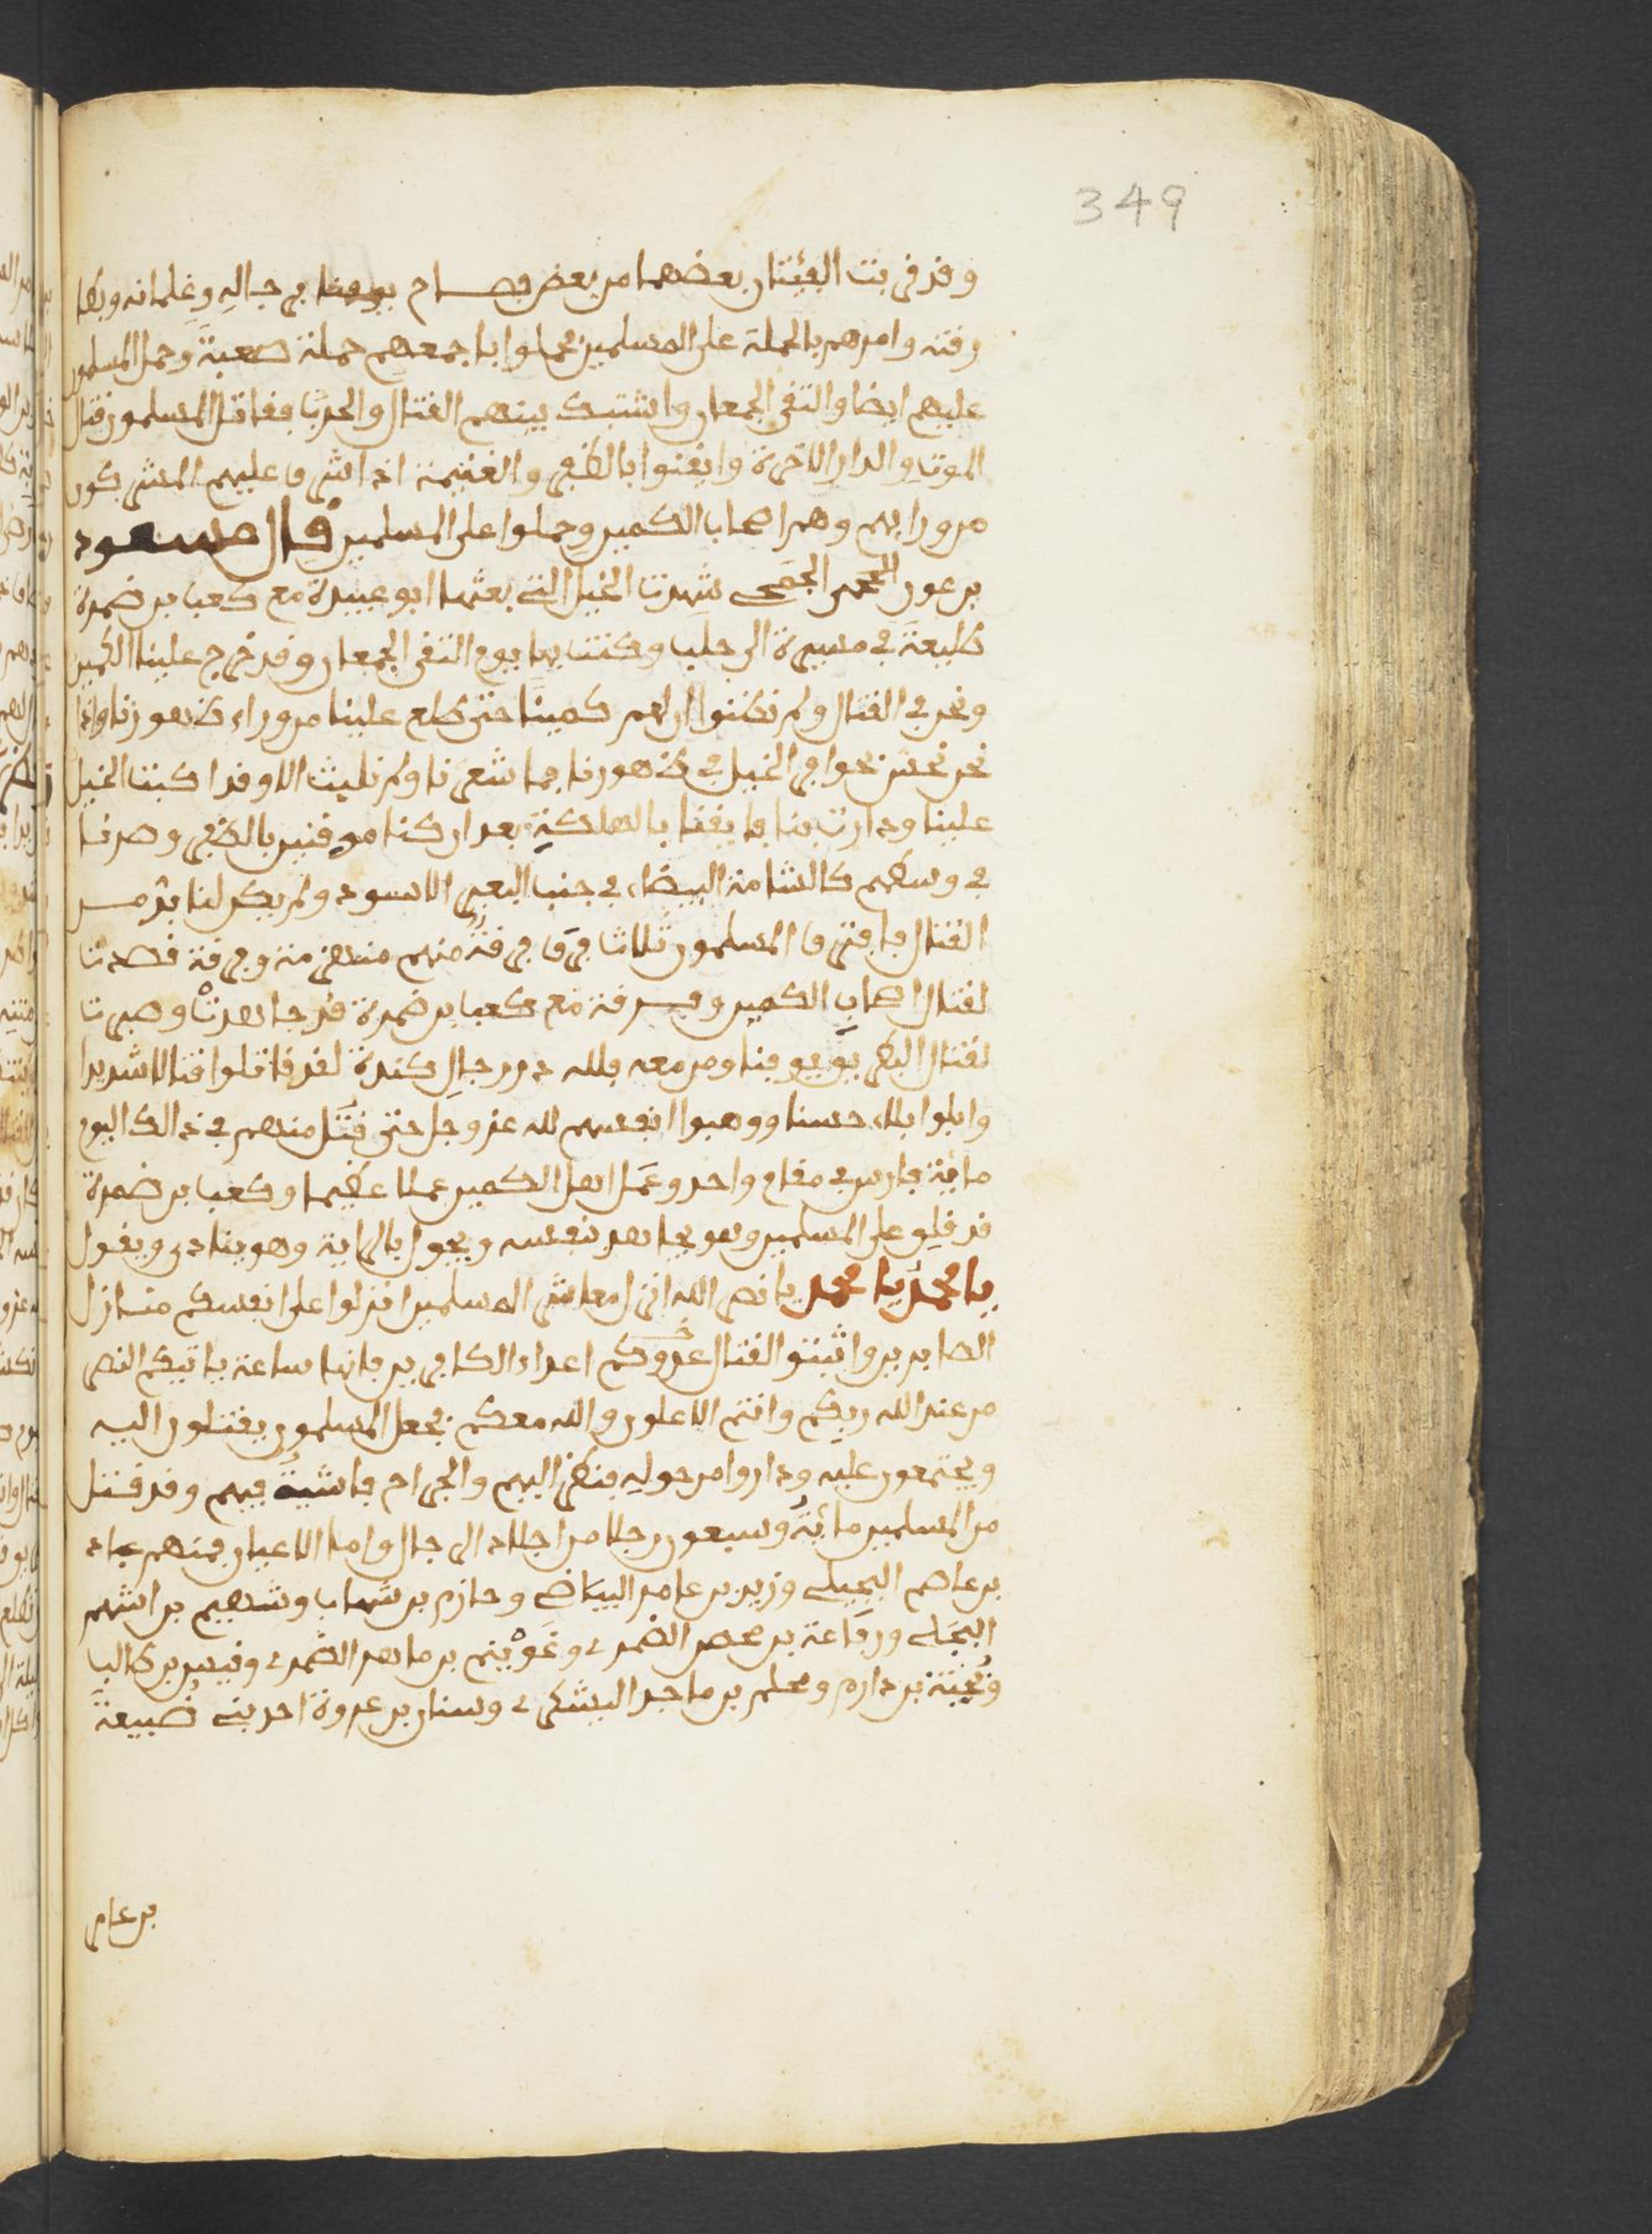 349
وقد قربت الفئتان بعضهما من بعض فصاح يوقنا برجاله وغلمانه وبطا
رقته وامرهم بالحملة على المسلمين فحملوا باجمعهم حملة صعبة وحمل المسلمون
عليهم ايضا والتقى الجمعان واشتبك بينهم القتال والحرب فقاتل المسلمون قتال
الموت والدار الاخرة وايقنوا بالظفر والغنيمة اذ اشرف عليهم المشركون
من ورايهم وهم اصحاب الكمين وحملوا على المسلمين قال مسعود
بن عون الجمحي شهدت الخيل التي بعثها ابو عبيدة مع كعب بن ضمرة
طليعة في مسيرة الى حلب وكنت بها يوم التقى الجمعان وقد خرج علينا الكمين
ونحن في القتال ولم نظنوا ان لهم كمينا حتى طلع علينا من وراء ظهورنا واذا
نحن نحس بحوافر الخيل في ظهورنا فما شعرنا ولم نلبث الا وقد اكبت الخيل
علينا ودارت بنا فايقنا بالهلكة بعد ان كنا موقنين بالظفر وصرنا
في وسطهم كالشامة البيضاء في جنب البعير الاسود ولم يكن لنا بد من
القتال فافترق المسلمون ثلاث فرق فرقة منهم منهزمة وفرقة قصدت
لقتال اصحاب الكمين وفرقة مع كعب بن ضمرة قد جاهدت وصبرت
لقتال البطريق يوقنا ومن معه فلله در رجال كندة لقد قاتلوا قتالا شديدا
وابلوا بلاء حسنا ووهبوا انفسهم لله عز وجل حتى قتل منهم في ذالك اليوم
ماية فارس في مقام واحد وعمل اهل الكمين عملا عظيما وكعب بن ضمرة
قد قلق على المسلمين وهو يجاهد بنفسه ويجول بالراية وهو ينادي ويقول
يا محمد يا محمد يا نصر الله انزل معاشر المسلمين انزلوا على انفسكم منازل
الصابرين واثبتوا لقتال عدوكم اعداء الكافرين فانها ساعة ياتيكم النصر
من عند الله ربكم وانتم الاعلون والله معكم فجعل المسلمون يقتلون اليه
ويجتمعون عليه وداروا من حوله فنظر اليهم والجراح فاشية فيهم وقد قتل
من المسلمين ماية وسبعون رجلا من اجلاد الرجال واما الاعيان فمنهم عباد
بن عاصم البجيلي وزيد بن عامر البياضي وحازم بن شهاب وشهيم بن اشهم
البجلي ورفاعة بن محصن الضمري وغويثم بن ماهد الضمري وقيس بن طالب
ونجبة بن دارم ومحلم بن ماجد اليشكري وسنان بن عروة احد بني ضبيعة
بن عامر